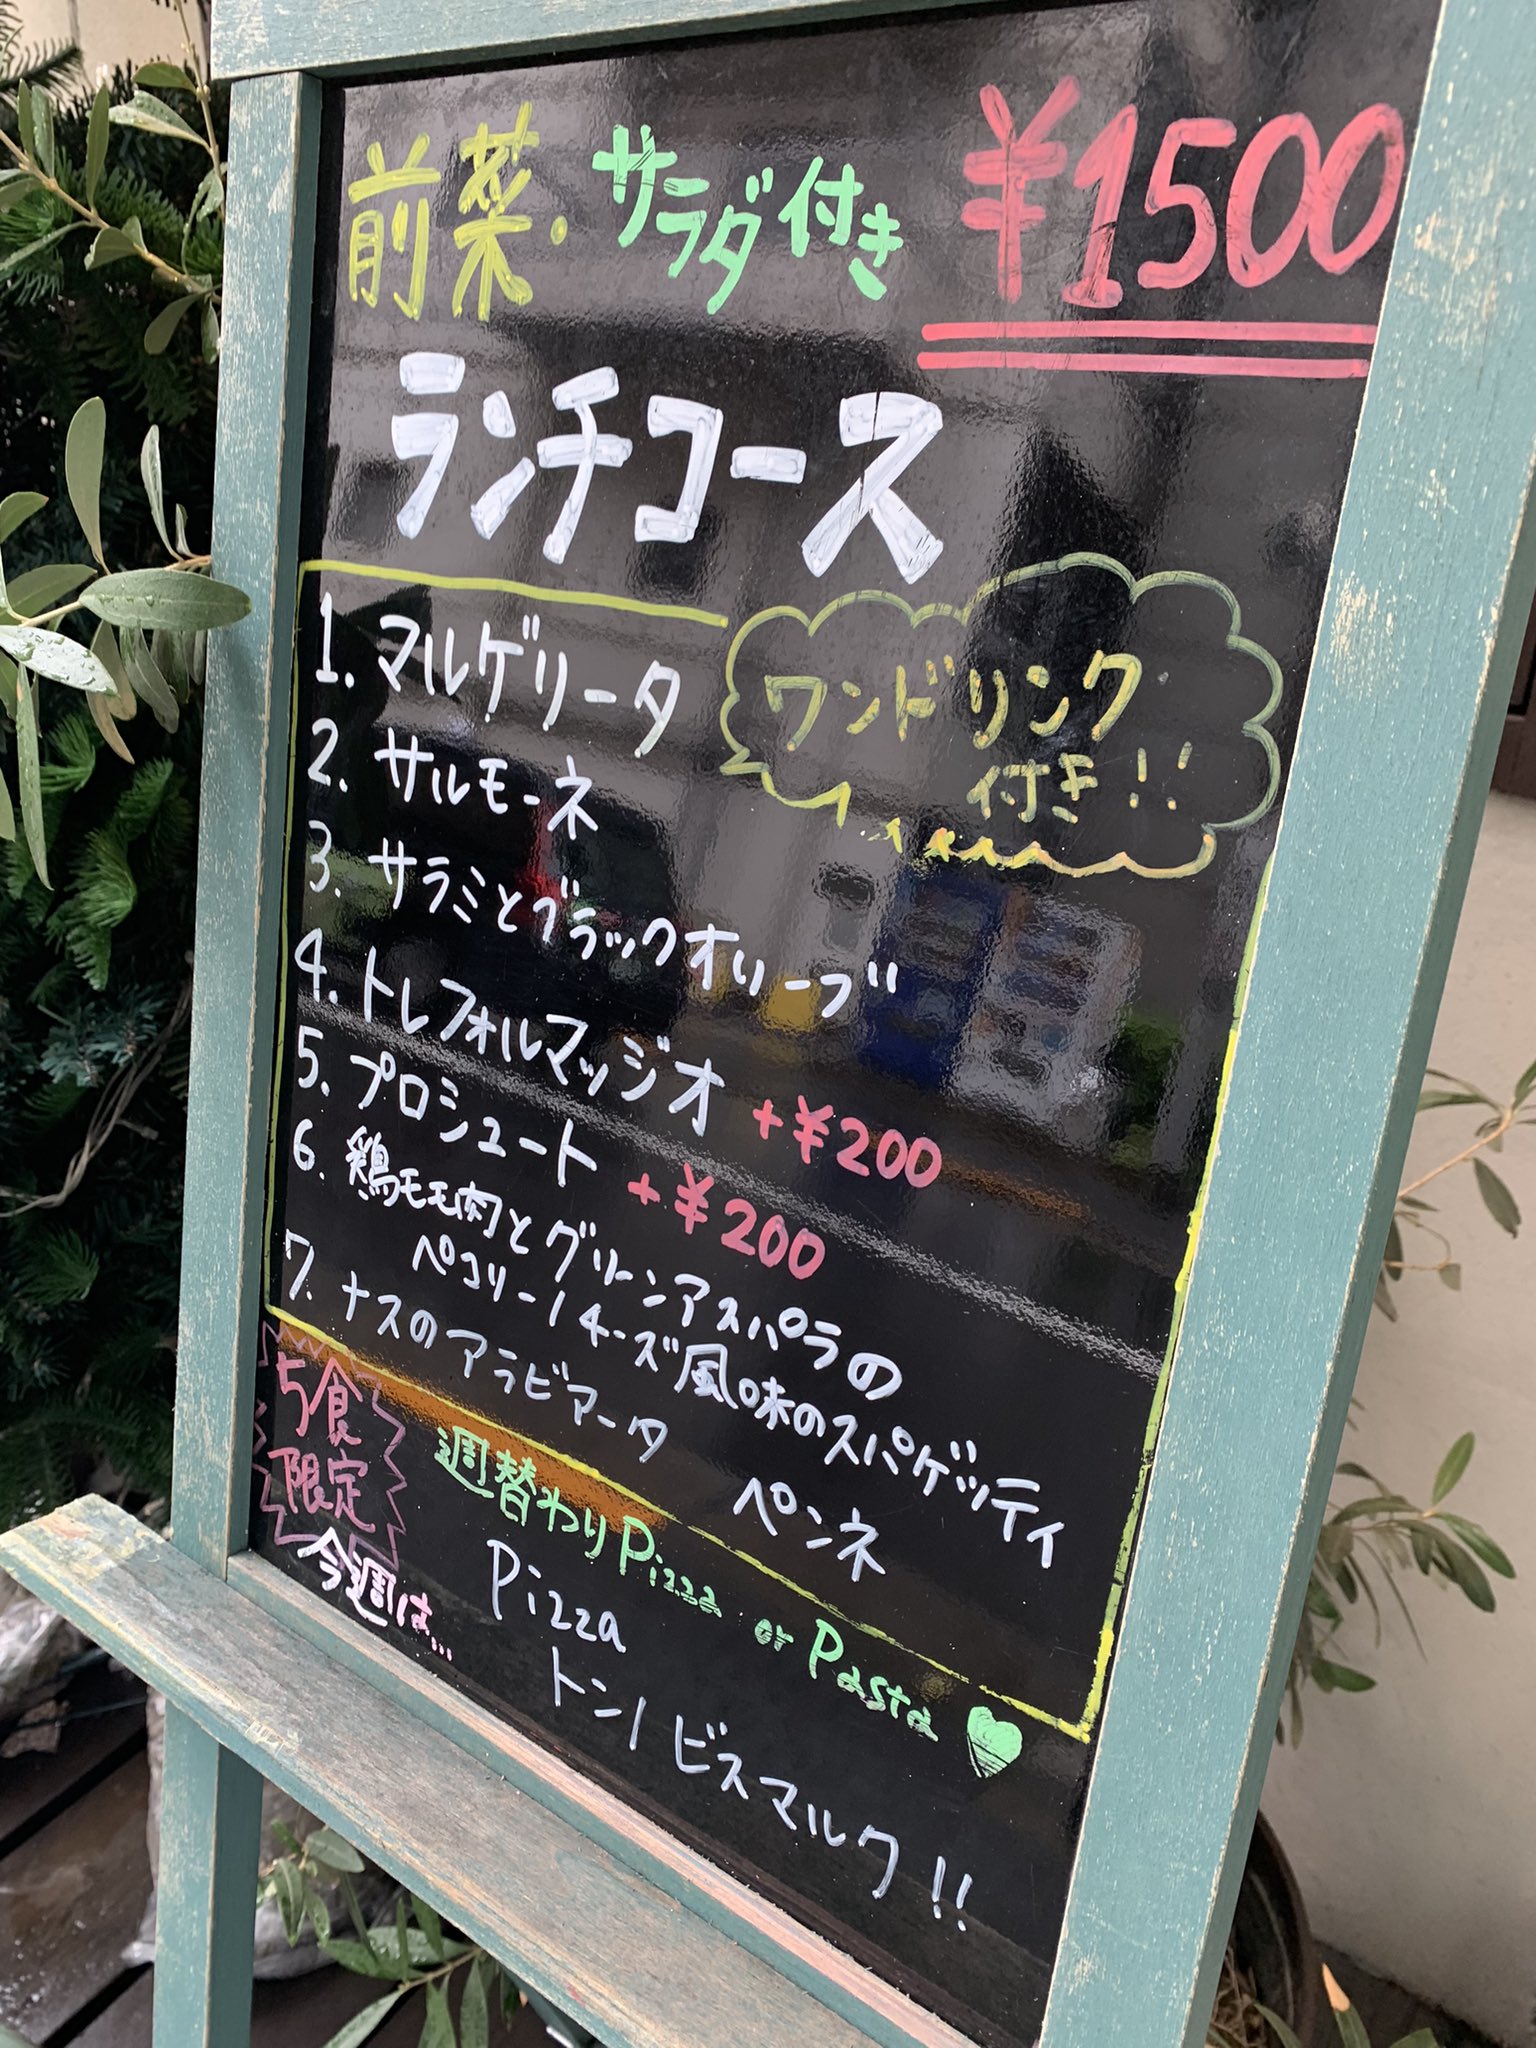 前菜・サラダ付き ¥1500
ランチコース
ワンドリンク
付き!!
1. マルゲリータ
2. サルモーネ
3. サラミとブラックオリーブ
4. トレフォルマッジオ +¥200
5. プロシュート +¥200
6. 鶏モモ肉とグリーンアスパラの
ペコリーノチーズ風味のスパゲッティ
7. ナスのアラビアータ ペンネ
5食
限定
週替わりPizza or Pasta
今週は...
Pizza
トンノビスマルク!!